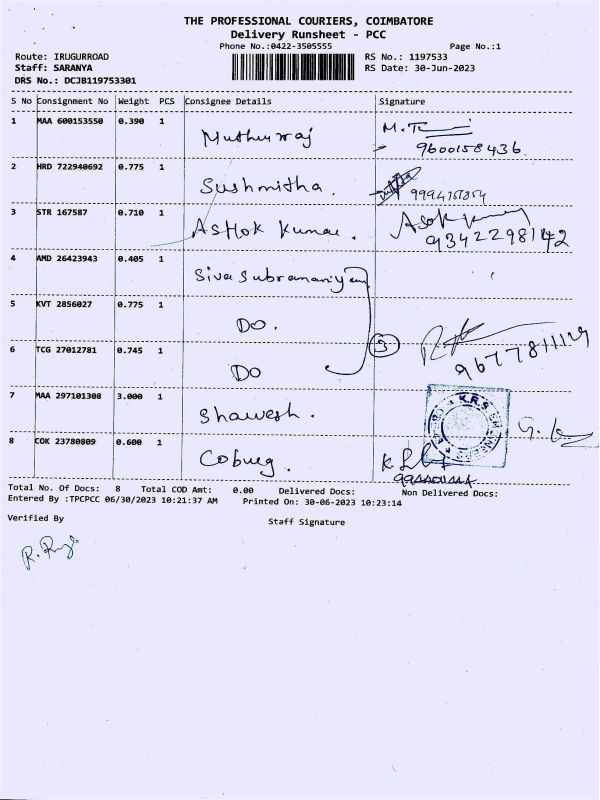 THE PROFESSIONAL COURIERS, COIMBATORE
Delivery Runsheet - PCC
Phone No.:0422-3505555 Page No.:1
Route: IRUGURROAD RS No.: 1197533
Staff: SARANYA RS Date: 30-Jun-2023
DRS No.: DCJB119753301
S No Consignment No Weight PCS Consignee Details Signature
1 MAA 600153550 0.390 1 Muthurraj M.T
9600158436
2 HRD 722940692 0.775 1 Sushmitha.
3 STR 167587 0.710 1 Ashok Kumar.
9342298142
4 AMD 26423943 0.405 1 Sivasubramaniyam
5 KVT 2856027 0.775 1 Do.
6 TCG 27012781 0.745 1 Do 3
9677811129
7 MAA 297101308 3.000 1 Shawesh.
K.R.S
8 COK 23780809 0.600 1 Coburg.
Total No. Of Docs: 8 Total COD Amt: 0.00 Delivered Docs: Non Delivered Docs:
Entered By :TPCPCC 06/30/2023 10:21:37 AM Printed On: 30-06-2023 10:23:14
Verified By Staff Signature